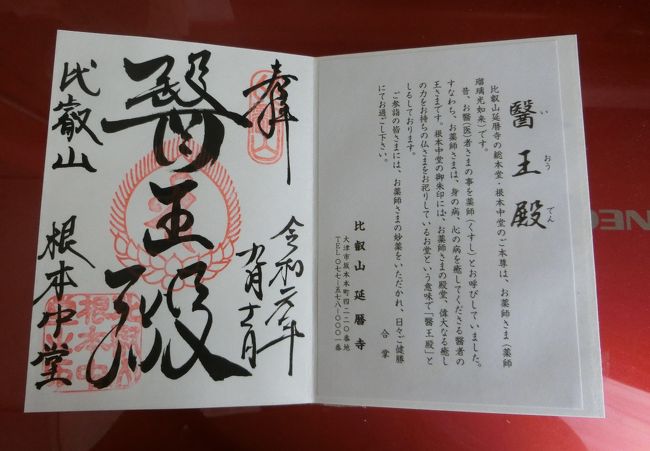 醫王殿
い おう でん
比叡山延暦寺の総本堂・根本中堂のご本尊は、お薬師さま(薬師
瑠璃光如来)です。
昔、お醫(医)者さまの事を薬師(くすし)とお呼びしていました。
すなわち、お薬師さまは、身の病、心の病を癒してくださる醫者の
王さまです。根本中堂の御朱印には、お薬師さまの殿堂、偉大なる癒し
の力をお持ちの仏さまをお祀りしているお堂という意味で「醫王殿」と
しるしております。
ご参詣の皆さまには、お薬師さまの妙薬をいただかれ、日々ご健勝
にてお過ごし下さい。
合掌
比叡山 延暦寺
大津市坂本本町四二二〇番地
TEL〇七七-五七八-〇〇〇一番
奉拝
令和元年
醫王殿
比叡山 根本中堂